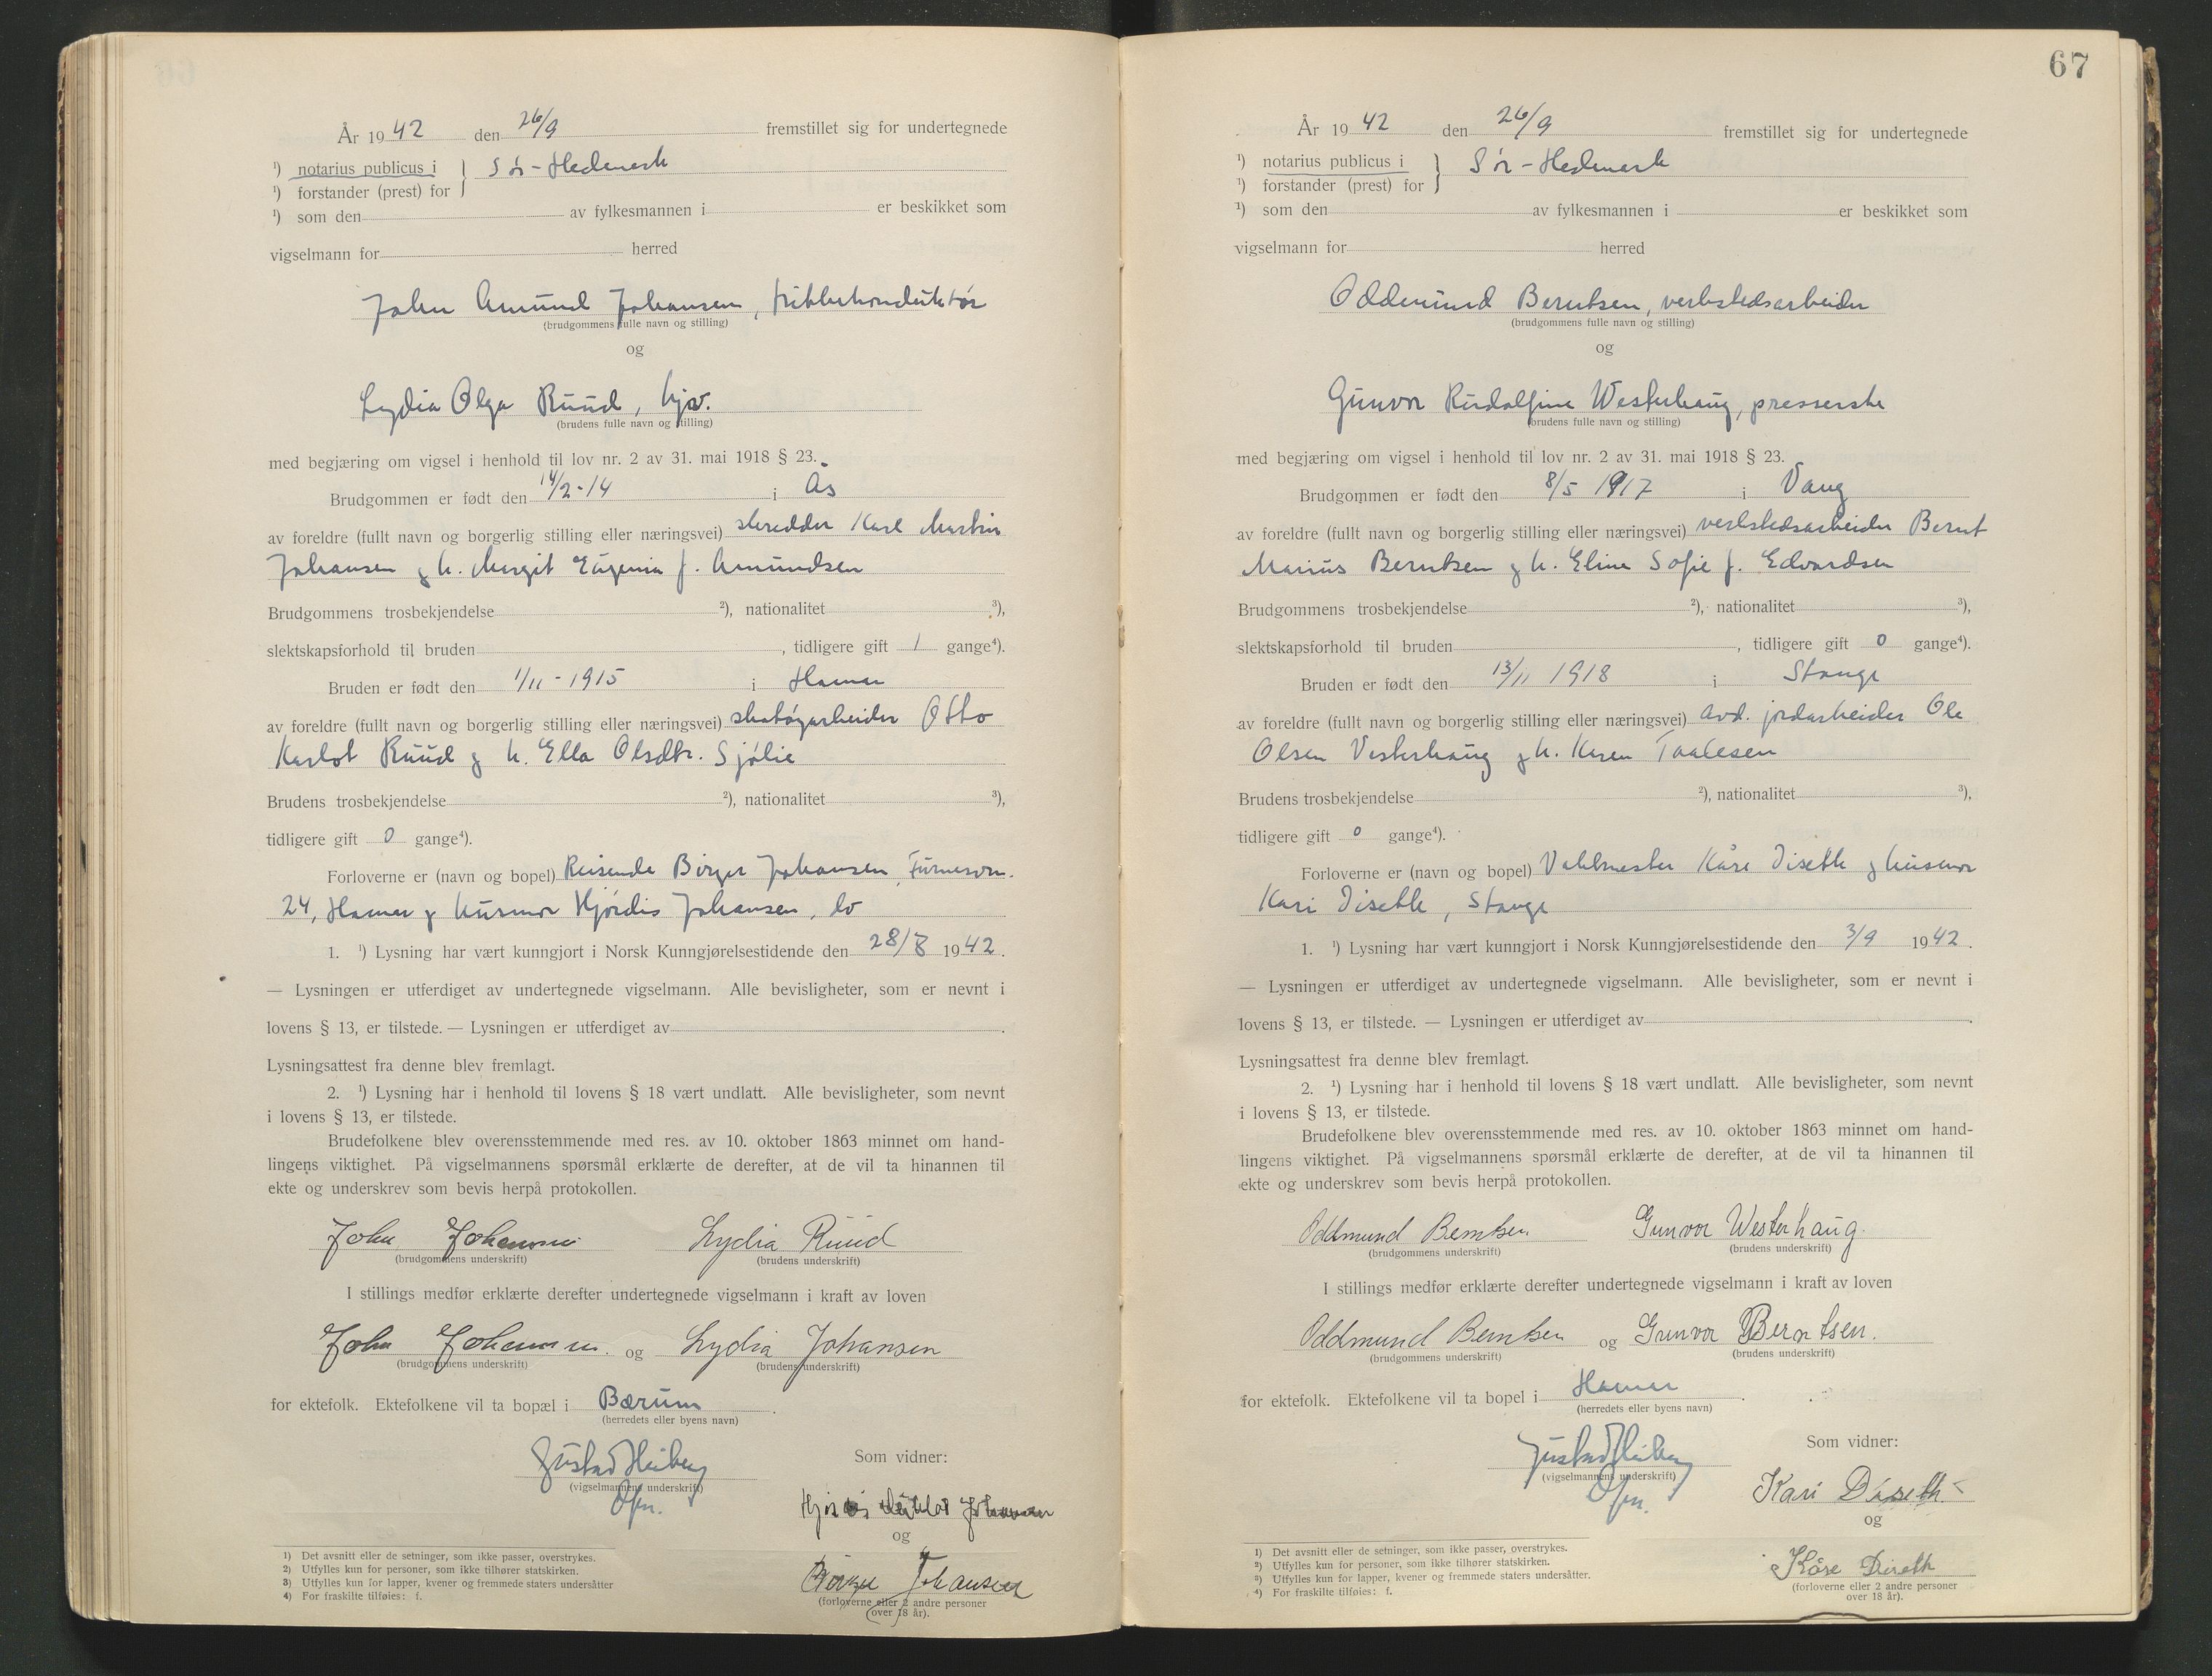 År 1942 den 26/9 fremstillet sig for undertegnede
¹) notarius publicus i } Sør-Hedmark
¹) forstander (prest) for
¹) som den av fylkesmannen i er beskikket som
vigselmann for herred
John Amund Johansen, trikkekonduktør
(brudgommens fulle navn og stilling)
og
Lydia Olga Ruud, hjv.
(brudens fulle navn og stilling)
med begjæring om vigsel i henhold til lov nr. 2 av 31. mai 1918 § 23.
Brudgommen er født den 14/2-14 i Ås
av foreldre (fullt navn og borgerlig stilling eller næringsvei) skredder Karl Martin
Johansen og h. Margit Eugenia f. Amundsen
Brudgommens trosbekjendelse ²), nationalitet ³),
slektskapsforhold til bruden , tidligere gift 1 gange⁴).
Bruden er født den 1/11-1915 i Hamar
av foreldre (fullt navn og borgerlig stilling eller næringsvei) skotøyarbeider Otto
Karlot Ruud og h. Ella Olsdtr. Sjølie
Brudens trosbekjendelse ²), nationalitet ³),
tidligere gift 0 gange⁴).
Forloverne er (navn og bopel) Reisende Birger Johansen, Furnesvn.
24, Hamar og husmor Hjördis Johansen, do
1. ¹) Lysning har vært kunngjort i Norsk Kunngjørelsestidende den 28/8 1942.
— Lysningen er utferdiget av undertegnede vigselmann. Alle bevisligheter, som er nevnt i
lovens § 13, er tilstede. — Lysningen er utferdiget av .
Lysningsattest fra denne blev fremlagt.
2. ¹) Lysning har i henhold til lovens § 18 vært undlatt. Alle bevisligheter, som nevnt
i lovens § 13, er tilstede.
Brudefolkene blev overensstemmende med res. av 10. oktober 1863 minnet om hand-
lingens viktighet. På vigselmannens spørsmål erklærte de derefter, at de vil ta hinannen til
ekte og underskrev som bevis herpå protokollen.
John Johansen Lydia Ruud
(brudgommens underskrift) (brudens underskrift)
I stillings medfør erklærte derefter undertegnede vigselmann i kraft av loven
John Johansen og Lydia Johansen
(brudgommens underskrift) (brudens underskrift)
for ektefolk. Ektefolkene vil ta bopæl i Bærum.
(herredets eller byens navn)
Gustav Heiberg
(vigselmannens underskrift)
Ofm.
Som vidner:
Hjördis Johansen
og
Birger Johansen
(forloverne eller 2 andre personer
over 18 år).
1) Det avsnitt eller de setninger, som ikke passer, overstrykes.
2) Utfylles kun for personer, som ikke tilhører statskirken.
3) Utfylles kun for lapper, kvener og fremmede staters undersåtter
4) For fraskilte tilføies: f.
67
År 1942 den 26/9 fremstillet sig for undertegnede
¹) notarius publicus i } Sør-Hedmark
¹) forstander (prest) for
¹) som den av fylkesmannen i er beskikket som
vigselmann for herred
Oddmund Berntsen, verkstedsarbeider
(brudgommens fulle navn og stilling)
og
Gunvor Rudolfine Westerhaug, presserske
(brudens fulle navn og stilling)
med begjæring om vigsel i henhold til lov nr. 2 av 31. mai 1918 § 23.
Brudgommen er født den 8/5 1917 i Vang
av foreldre (fullt navn og borgerlig stilling eller næringsvei) verkstedsarbeider Bernt
Marius Berntsen og h. Eline Sofie f. Edvardsen
Brudgommens trosbekjendelse ²), nationalitet ³),
slektskapsforhold til bruden , tidligere gift 0 gange⁴).
Bruden er født den 13/11 1918 i Stange
av foreldre (fullt navn og borgerlig stilling eller næringsvei) avd. jordarbeider Ole
Olsen Vesterhaug og h. Karen Paalesen
Brudens trosbekjendelse ²), nationalitet ³),
tidligere gift 0 gange⁴).
Forloverne er (navn og bopel) Vaktmester Kåre Diseth og husmor
Kari Diseth, Stange
1. ¹) Lysning har vært kunngjort i Norsk Kunngjørelsestidende den 3/9 1942.
— Lysningen er utferdiget av undertegnede vigselmann. Alle bevisligheter, som er nevnt i
lovens § 13, er tilstede. — Lysningen er utferdiget av .
Lysningsattest fra denne blev fremlagt.
2. ¹) Lysning har i henhold til lovens § 18 vært undlatt. Alle bevisligheter, som nevnt
i lovens § 13, er tilstede.
Brudefolkene blev overensstemmende med res. av 10. oktober 1863 minnet om hand-
lingens viktighet. På vigselmannens spørsmål erklærte de derefter, at de vil ta hinannen til
ekte og underskrev som bevis herpå protokollen.
Oddmund Berntsen Gunvor Westerhaug.
(brudgommens underskrift) (brudens underskrift)
I stillings medfør erklærte derefter undertegnede vigselmann i kraft av loven
Oddmund Berntsen og Gunvor Berntsen.
(brudgommens underskrift) (brudens underskrift)
for ektefolk. Ektefolkene vil ta bopel i Hamar.
(herredets eller byens navn)
Gustav Heiberg
(vigselmannens underskrift)
Ofm.
Som vidner:
Kari Diseth
og
Kåre Diseth
(forloverne eller 2 andre personer
over 18 år).
1) Det avsnitt eller de setninger, som ikke passer, overstrykes.
2) Utfylles kun for personer, som ikke tilhører statskirken.
3) Utfylles kun for lapper, kvener og fremmede staters undersåtter.
4) For fraskilte tilføies: f.